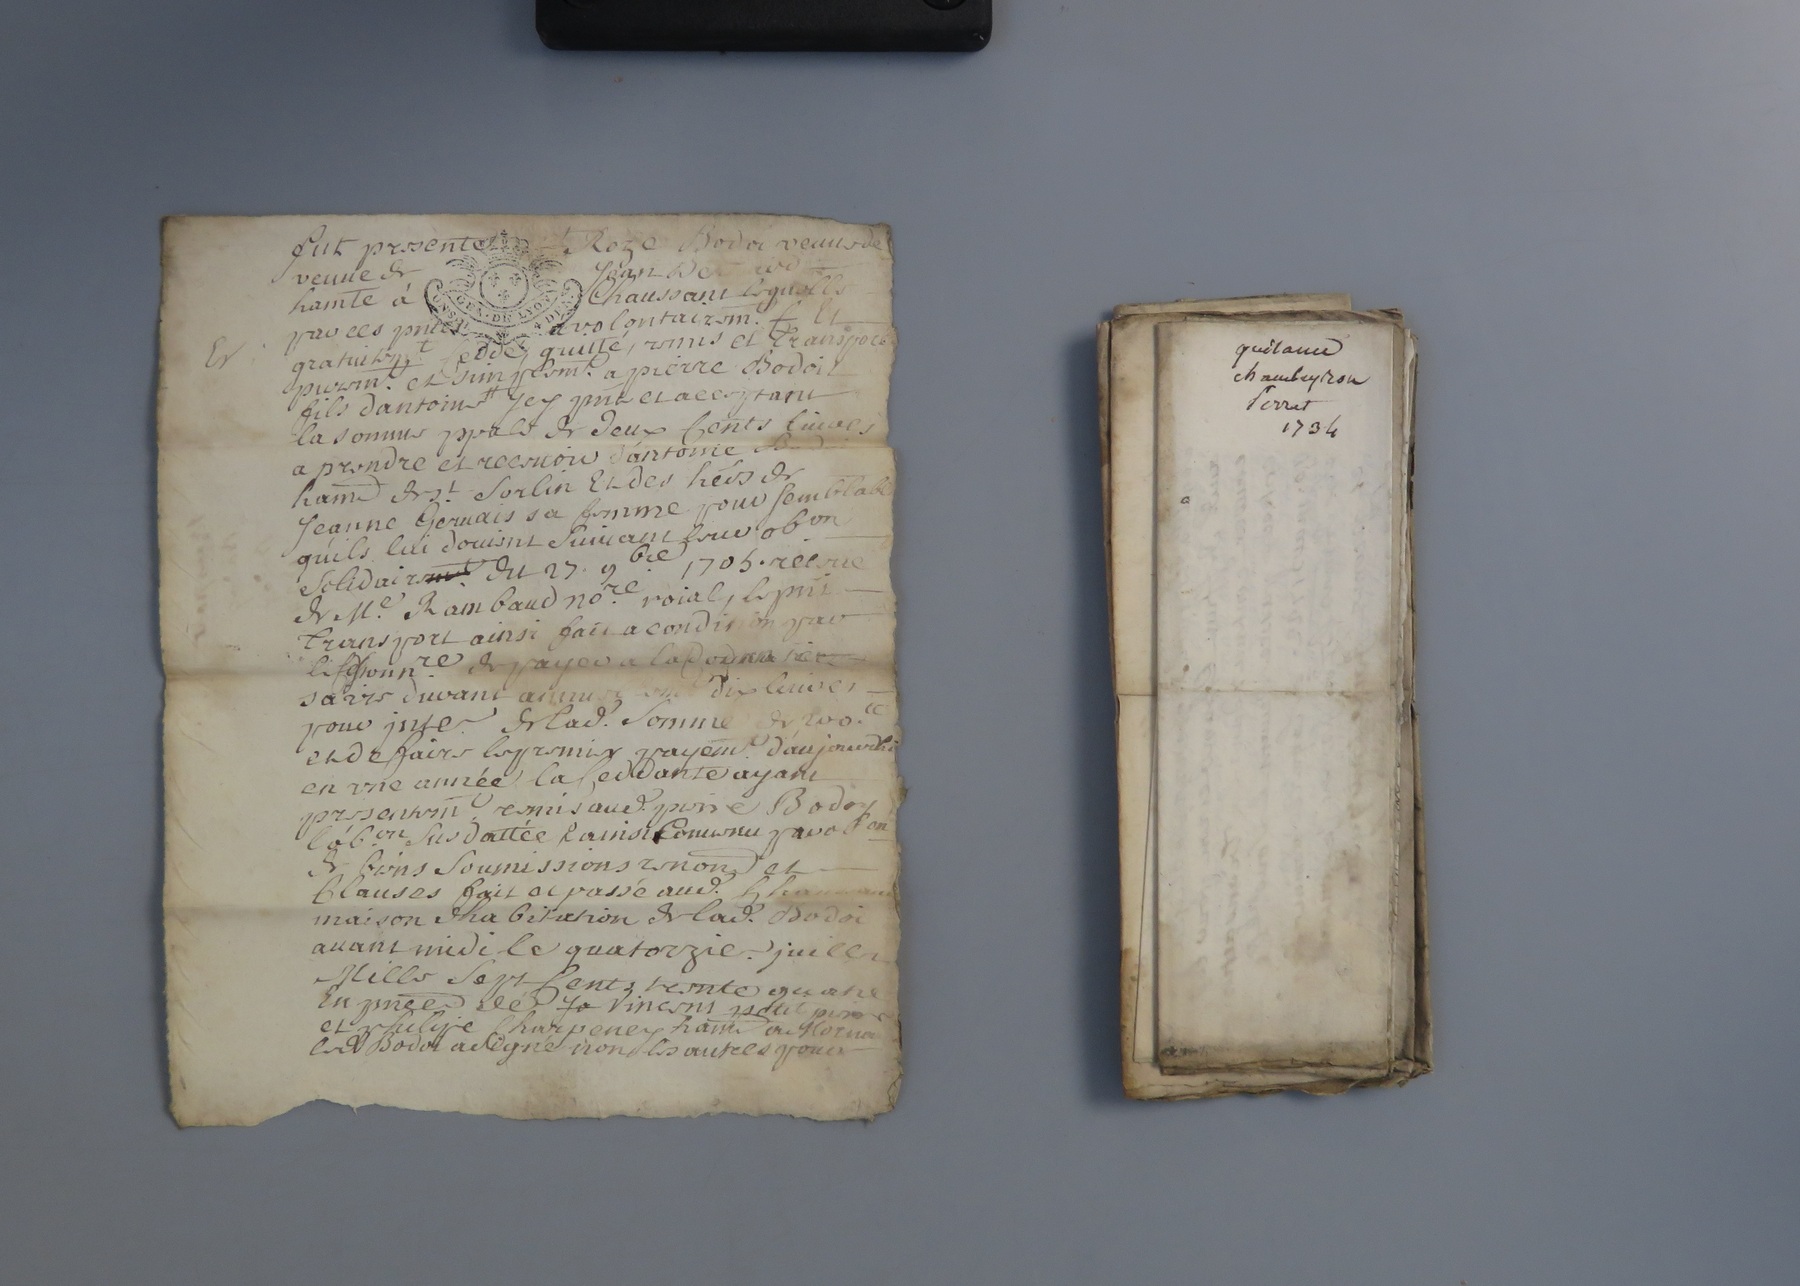 fut presente Roze Bodoi veuusde
veuue de Jean
hante à Chaussant lequelle
par ces pntes a volontairemt. Et
Er
gratuitemt. ceddé, quitté, remis et transporté
puremt. et simplemt. a pierre Bodoi
fils dantoine Icy pnt et acceptant
la somme pple de deux cents liures
a prendre et receuoir d'antoine
hant de st. Sorlin Et des hers de
Jeanne Geruais sa femme pour semblable
quils lui doiuent suiuant leur obon
solidaire du 27. 9bre 1705. receue
de Me. Rambaud nore. roial, le pnt
transport ainsi fait a condition par
le cessionnre de payer a la
sa vie durant dix liures
pour inter. de lad. somme de 200.tt
et de faire le premier payemt. d'aujourdhui
en vne année la ceddante ayant
presentemt. remis aud. pierre Bodoy
l'obon. susdattée Et ainsi Conuenu par
de biens soumissions renond et
Clauses fait et passé aud.
maison d'habitation de lad. Bodoi
auant midi le quatorzie. juillet
Mille sept cents trente quatre
En pnce de Vincent petit
et philipe Charpeney hant a Morna
led Bodoi a signé non les autres pour
quitance
chambeyron
Perret
1734